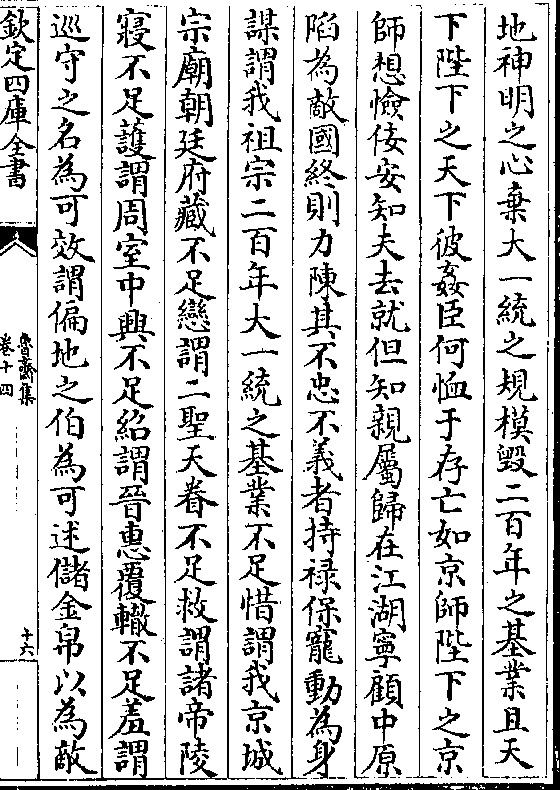 地神明之心棄大一統之規模毀二百年之基業且天
下陛下之天下彼姦臣何恤于存亡如京師陛下之京
師想憸佞安知夫去就但知親屬歸在江湖寧顧中原
陷為敵國終則力陳其不忠不義者持禄保寵動為身
謀謂我祖宗二百年大一統之基業不足惜謂我京城
宗廟朝廷府藏不足戀謂二聖天眷不足救謂諸帝陵
寢不足護謂周室中興不足紹謂晉惠覆轍不足羞謂
巡守之名為可效謂偏地之伯為可述儲金帛以為敵
欽定四庫全書
魯齋集
卷十四
十六